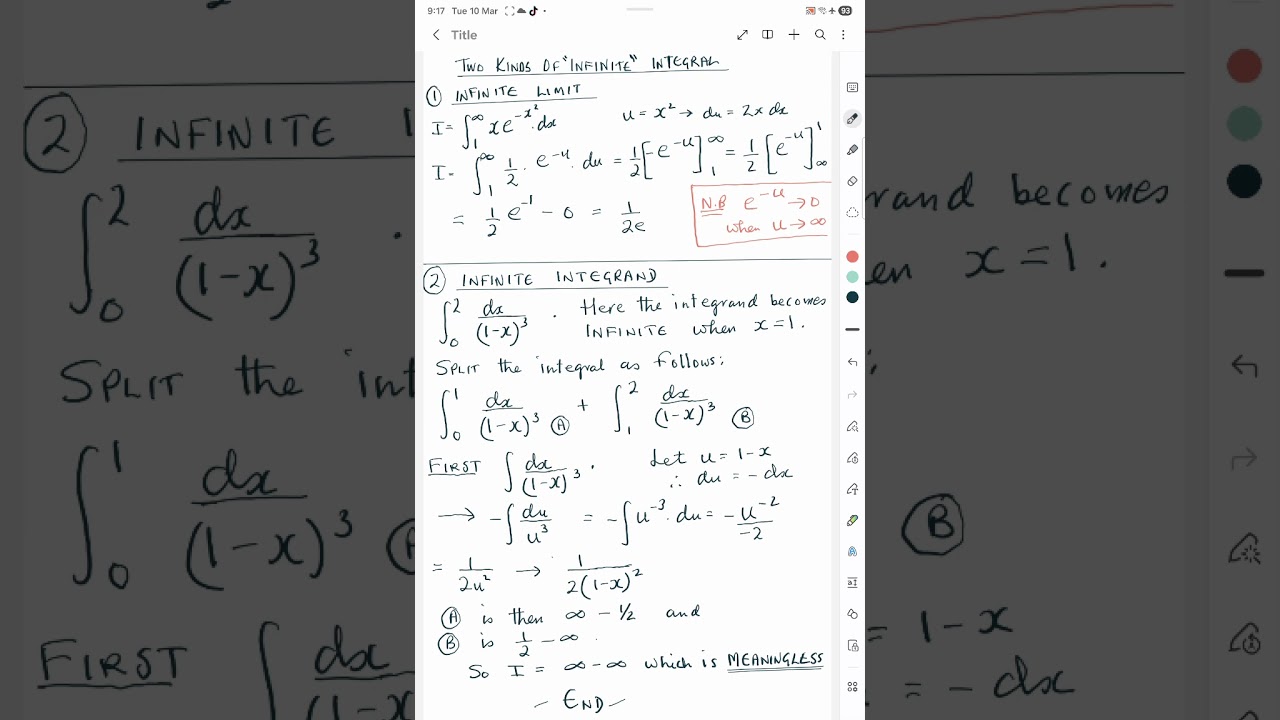 9:17 Tue 10 Mar 93
Title
TWO KINDS OF "INFINITE" INTEGRAL
① INFINITE LIMIT
I = ∫₁^∞ x e^{-x²} · dx u = x² → du = 2x dx
I = ∫₁^∞ 1/2 · e^{-u} · du = 1/2 [-e^{-u}]₁^∞ = 1/2 [e^{-u}]_∞^1
= 1/2 e^{-1} - 0 = 1/2e
N.B e^{-u} → 0
when u → ∞
② INFINITE INTEGRAND
∫₀² dx/(1-x)³ . Here the integrand becomes
INFINITE when x = 1.
SPLIT the integral as follows;
∫₀¹ dx/(1-x)³ Ⓐ + ∫₁² dx/(1-x)³ Ⓑ
FIRST ∫ dx/(1-x)³ . Let u = 1-x
∴ du = -dx
→ -∫ du/u³ = -∫ u^{-3} · du = -u^{-2}/-2
= 1/2u² → 1/2(1-x)²
Ⓐ is then ∞ - 1/2 and
Ⓑ is 1/2 - ∞ .
So I = ∞ - ∞ which is MEANINGLESS
- END -